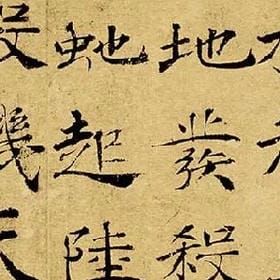 地發殺
虵起陸
殺機天